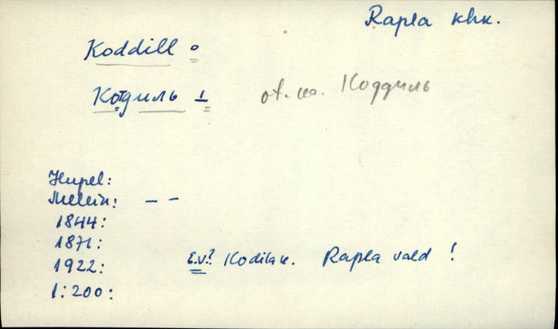 Rapla khk.
Koddill o
Котдиль 1 Коддиль
Hupel:
Mellin: — —
1844:
1871:
1922: E.V.? Kodila k. Rapla vald !
1:200: